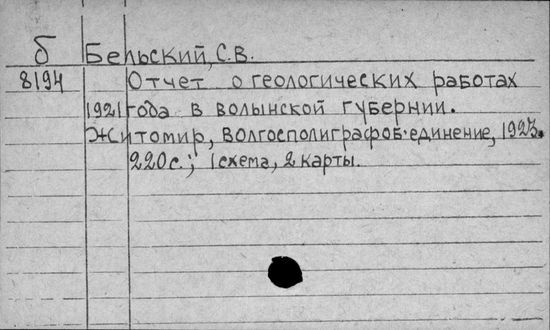 б Бельский, С.В.
8194 Отчет о геологических работах
1921 года в волынской губернии.
Житомир, Волгосполиграфоб'единение, 1923.
220с.; 1 схема, 2 карты.